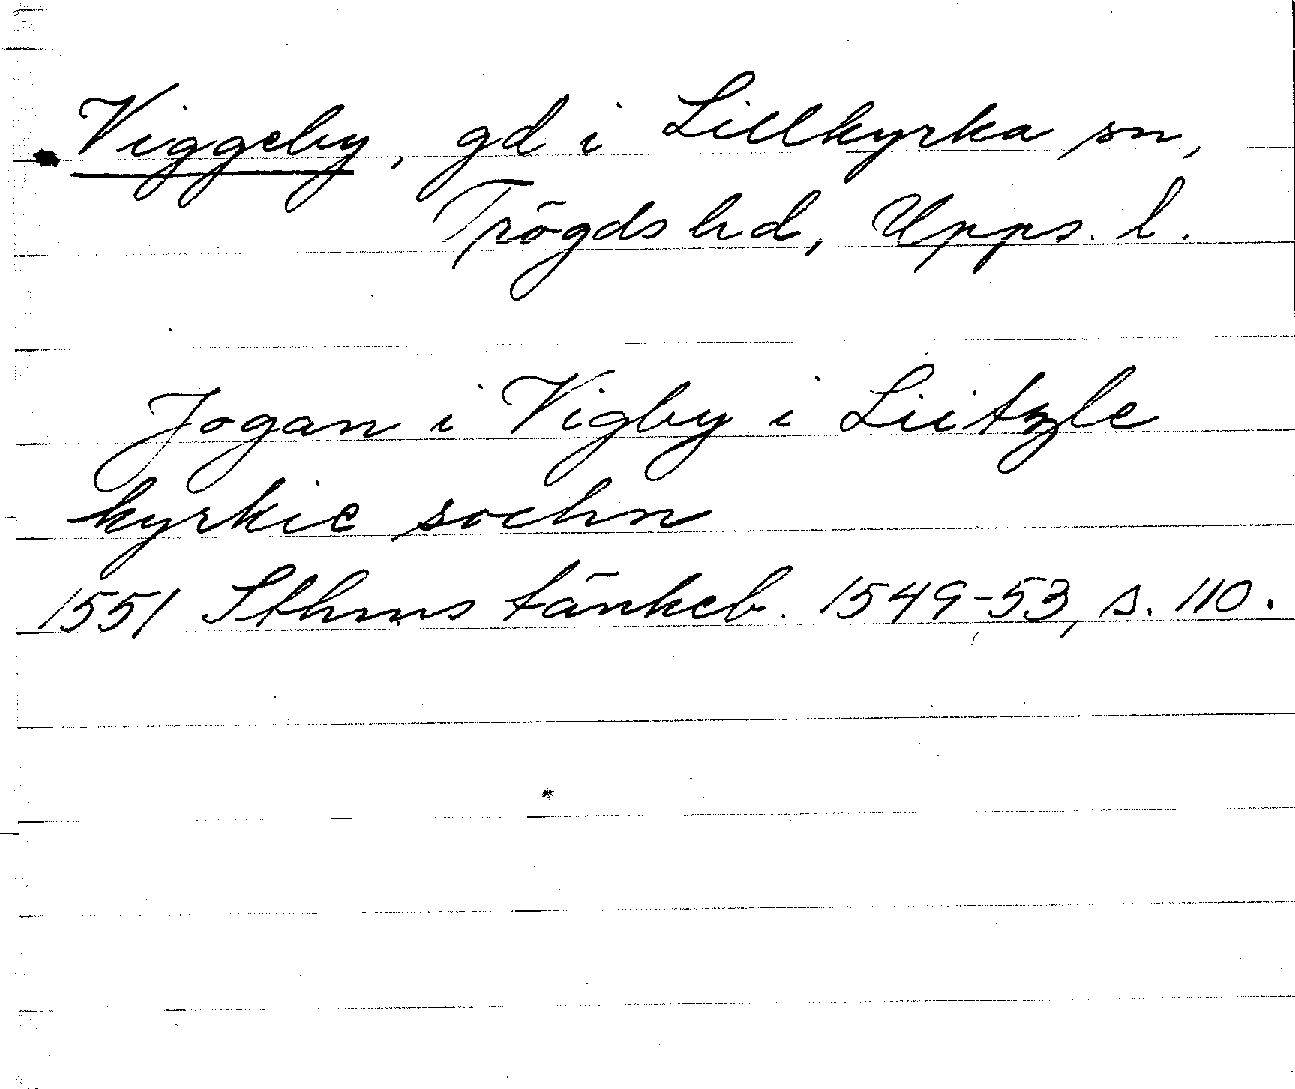 Viggeby, gd i Lillkyrka sn,
Trögds hd, Upps. l.
Jogan i Vigby i Liitzle
kyrkie sochn
1551 Sthms tänkeb. 1549-53, s. 110.